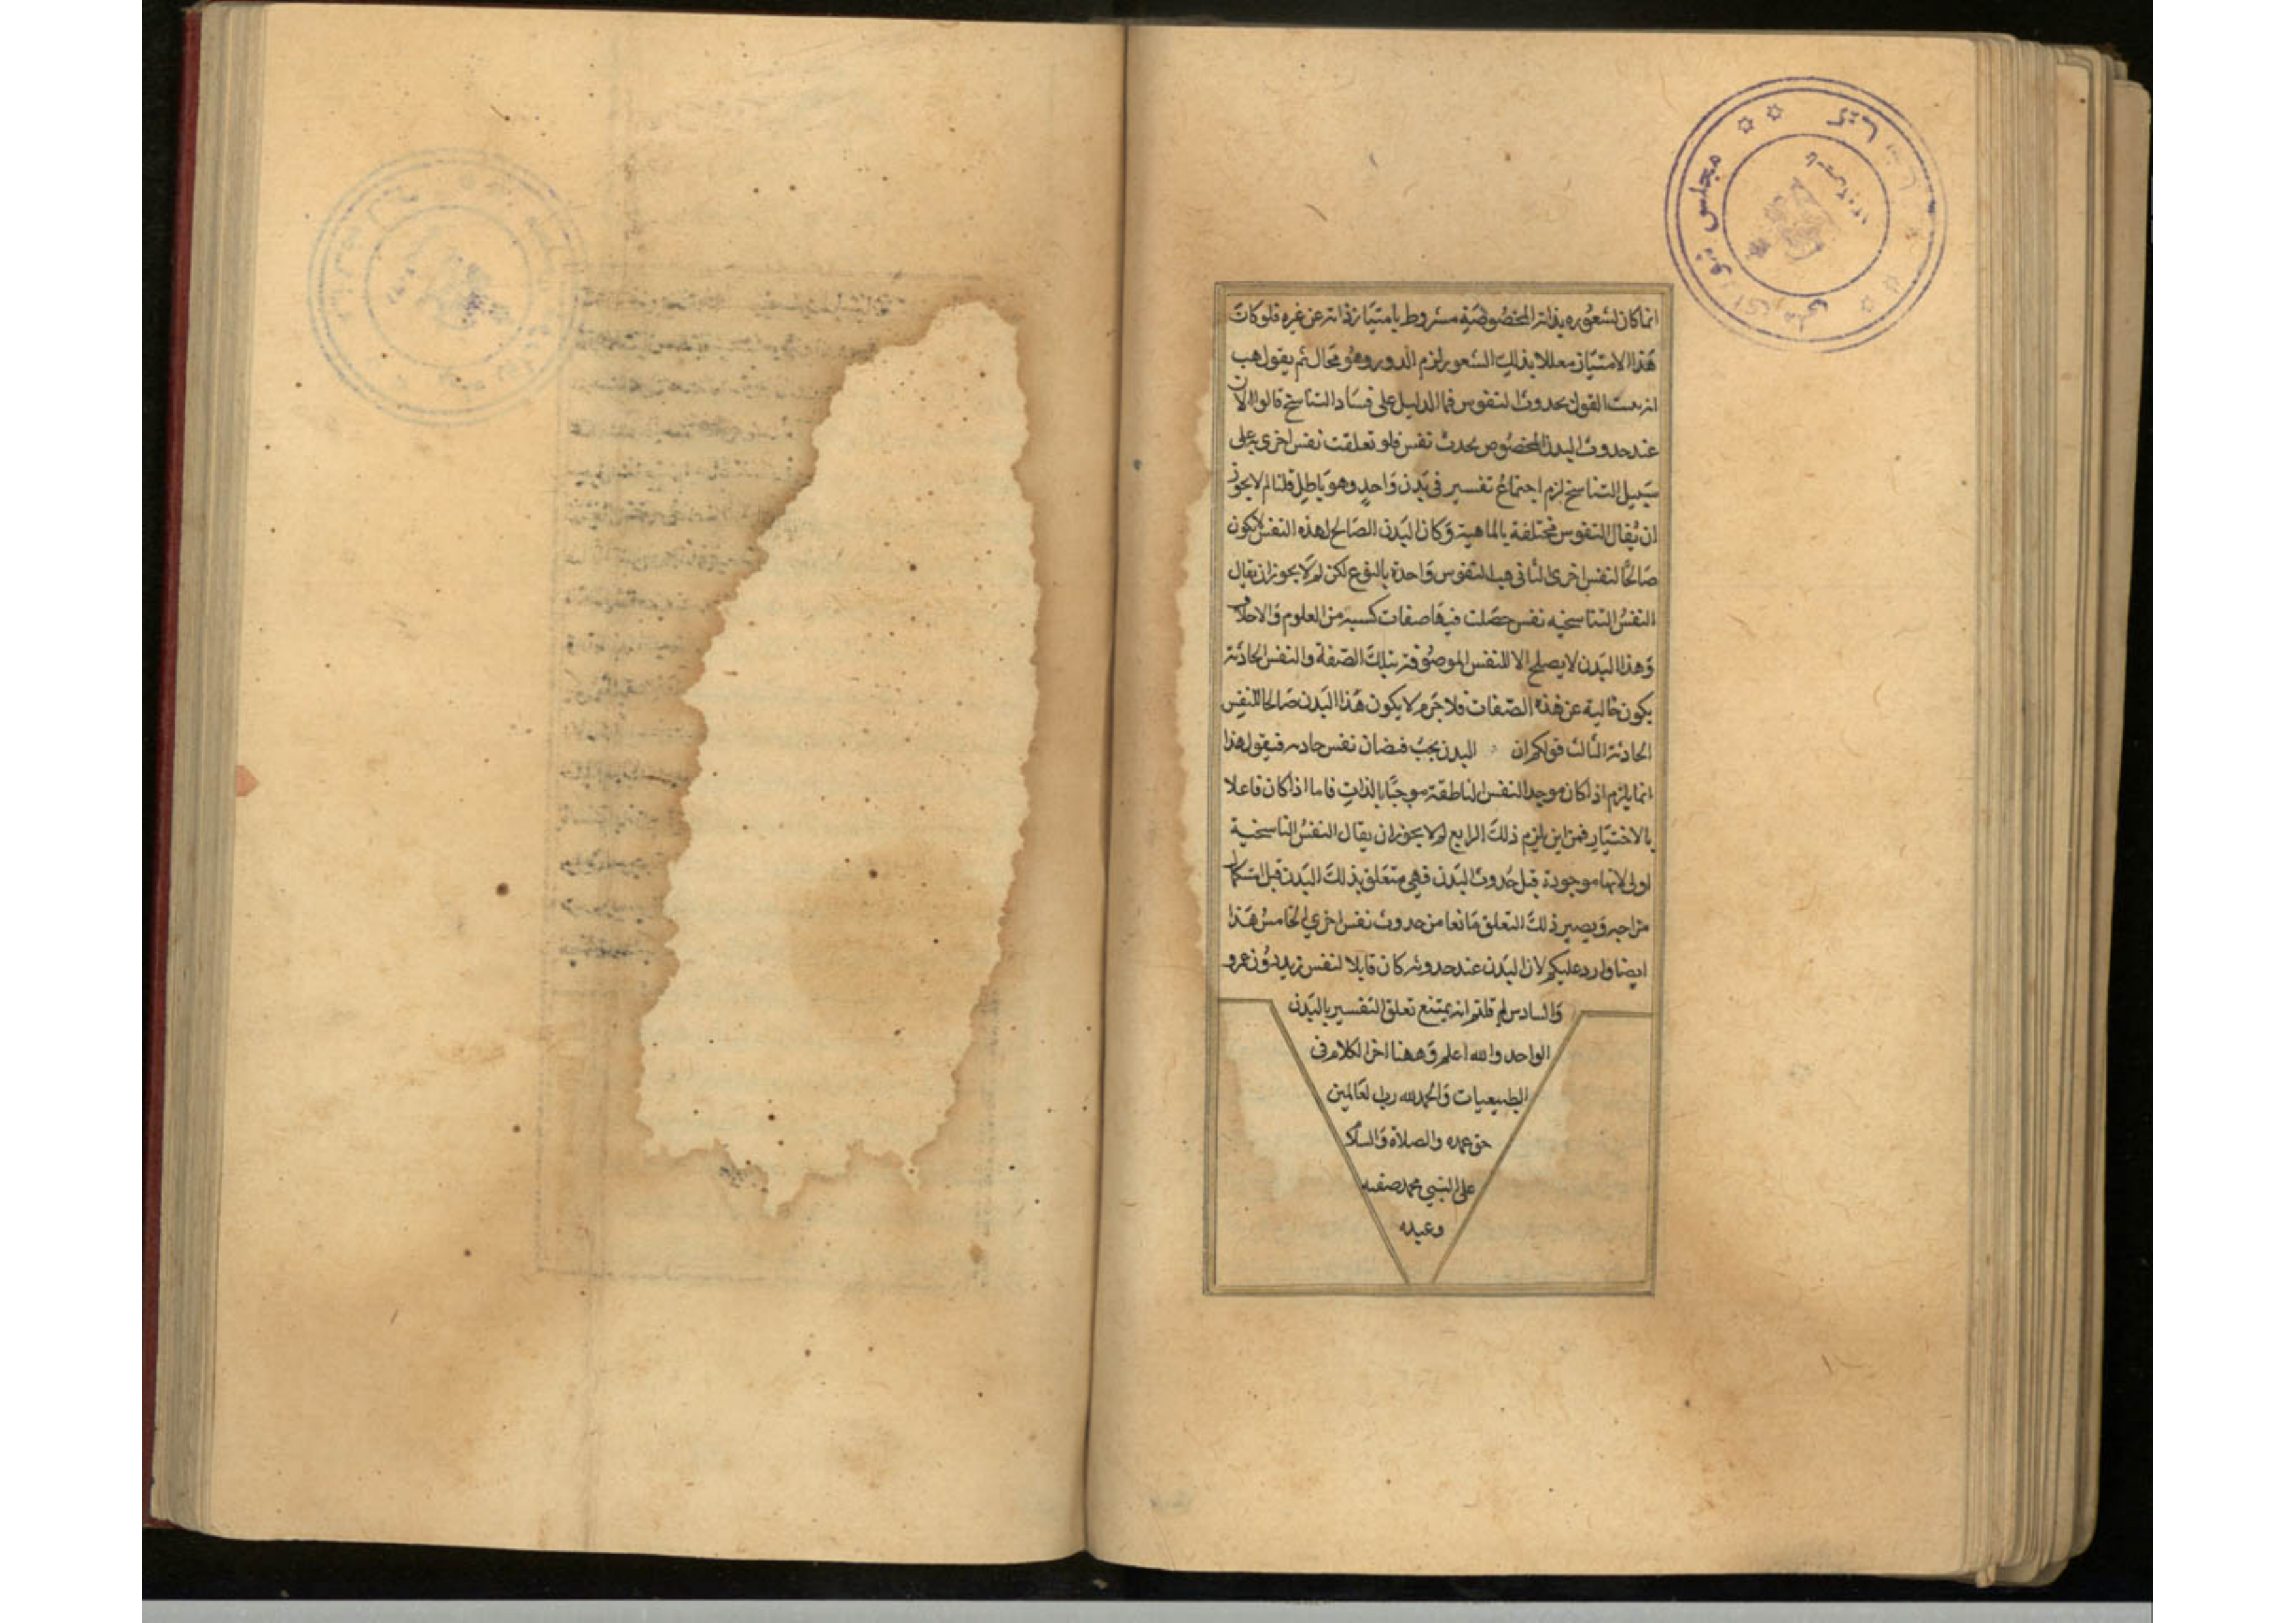 انما كان لشعوره بذاته المخصوصة مشروط بامتياز ذاته عن غيره فلو كانت
هذا الامتياز معللا بذلك الشعور لزم الدور وهو محال ثم يقول هب
انه ثبت القول بحدوث النفوس فما الدليل على فساد التناسخ قالوا لان
عند حدوث البدن المخصوص يحدث نفس فلو تعلقت نفس اخرى به على
سبيل التناسخ لزم اجتماع نفسين في بدن واحد وهو باطل قلنا لم لا يجوز
ان يقال النفوس مختلفة بالماهية وكان البدن الصالح لهذه النفس لا يكون
صالحا لنفس اخرى الثاني هب النفوس واحدة بالنوع لكن لم لا يجوز ان يقال
النفس التناسخيه نفس حصلت فيها صفات كسبية من العلوم والاخلاق
وهذا البدن لا يصلح الا للنفس الموصوفة بتلك الصفة والنفس الحادثة
يكون خالية عن هذه الصفات فلا جرم لا يكون هذا البدن صالحا للنفس
الحادثة الثالث قولكم ان البدن يجب فيضان نفس حادثه فيقول هذا
انما يلزم اذا كان موجد النفس الناطقة موجبا بالذات فاما اذا كان فاعلا
بالاختيار فمن اين يلزم ذلك الرابع لم لا يجوز ان يقال النفس التناسخية
اولى لانها موجودة قبل حدوث البدن فهي متعلق بذلك البدن قبل استكمال
مزاجه ويصير ذلك التعلق مانعا من حدوث نفس اخرى الخامس هذا
ايضا وارد عليكم لان البدن عند حدوثه كان قابلا لنفس زيد دون عمرو
والسادس لم قلتم انه يمتنع تعلق النفسين بالبدن
الواحد والله اعلم وههنا اخر الكلام في
الطبيعيات والحمد لله رب العالمين
حق حمده والصلاة والسلام
على النبي محمد صفيه
وعبده
مجلس شورای ملی